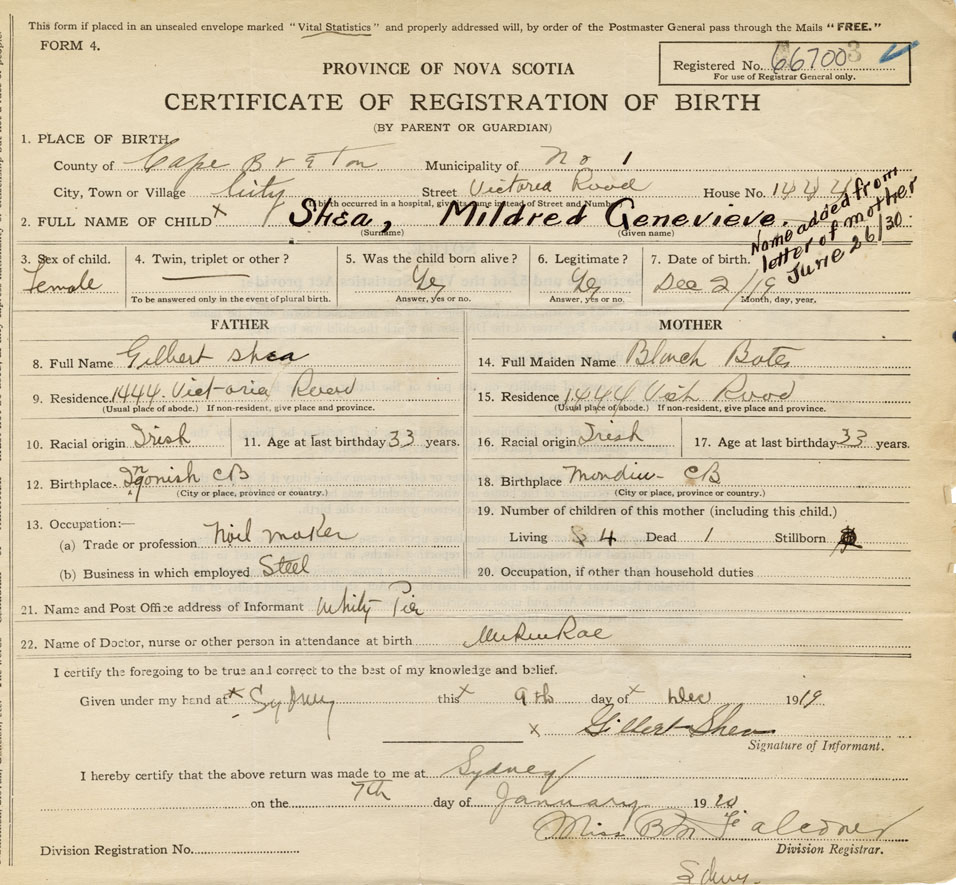 This form if placed in an unsealed envelope marked "Vital Statistics" and properly addressed will, by order of the Postmaster General pass through the Mails "FREE."
FORM 4.
Registered No. 667003
For use of Registrar General only.
PROVINCE OF NOVA SCOTIA
CERTIFICATE OF REGISTRATION OF BIRTH
(BY PARENT OR GUARDIAN)
1. PLACE OF BIRTH
County of Cape Breton Municipality of No 1
City, Town or Village City Street Victoria Rood House No. 1444
If birth occurred in a hospital, give its name instead of Street and Number
2. FULL NAME OF CHILD x Shea, Mildred Genevieve.
(Surname) (Given name)
Name added from
letter of mother
June 26/30.
3. Sex of child. 4. Twin, triplet or other? 5. Was the child born alive? 6. Legitimate? 7. Date of birth.
Female Yes Yes Dec 2/19
To be answered only in the event of plural birth. Answer, yes or no. Answer, yes or no. Month, day, year,
FATHER
8. Full Name Gilbert Shea
9. Residence. 1444. Victoria Rood
(Usual place of abode.) If non-resident, give place and province.
10. Racial origin Irish 11. Age at last birthday 33 years.
12. Birthplace- Ingonish CB
(City or place, province or country.)
13. Occupation:—
(a) Trade or profession Nail maker
(b) Business in which employed Steel
MOTHER
14. Full Maiden Name Blanch Bates
15. Residence 1444 Vict Rood
(Usual place of abode.) If non-resident, give place and province.
16. Racial origin Irish 17. Age at last birthday 33 years.
18. Birthplace CB
(City or place, province or country.)
19. Number of children of this mother (including this child.)
Living 4 Dead 1 Stillborn
20. Occupation, if other than household duties
21. Name and Post Office address of Informant Whitney Pier
22. Name of Doctor, nurse or other person in attendance at birth
I certify the foregoing to be true and correct to the best of my knowledge and belief.
Given under my hand at x Sydney this x 9th day of x Dec 1919
x Gilbert Shea
Signature of Informant.
I hereby certify that the above return was made to me at Sydney
on the 7th day of January 1920
Miss B M Falconer
Division Registration No. Division Registrar.
Sydney.